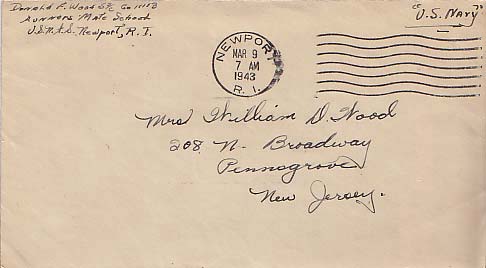 Donald F. Wood S2/c Co 1118
Gunners Mate School
U.S.N.T.S. Newport, R. I.
"U.S. Navy"
NEWPORT
MAR 9
7 AM
1943
R. I.
Mrs William D. Wood
208 N. Broadway
Pennsgrove
New Jersey.